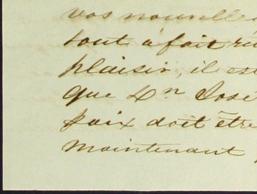 vos nouvelle
tout à fait
plaisir, il es
que Dn José
paix doit être
maintenant